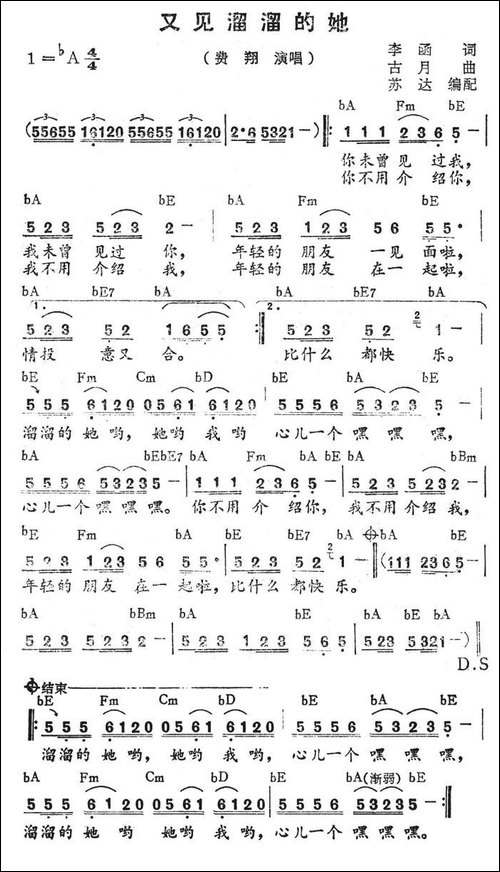 又见溜溜的她
1=♭A 4/4
（费翔 演唱）
李函 词
古月 曲
苏达 编配
(55655 16120 55655 16120 | 2·6 5321 - ) ‖: 1 1 1 2 3 6 5 - |
bA Fm bE
你未曾见过我，
你不用介绍你，
bA bE bA Fm bE
5 2 3 5 2 3 2 - | 5 2 3 1 2 3 5 6 5 5· |
我未曾见过你，年轻的朋友一见面啦，
我不用介绍我，年轻的朋友在一起啦，
bA bE7 bA bA bE7 bA
1. 5 2 3 5 2 1 6 5 5 :‖ 2. 5 2 3 5 2 1 - |
情投意又合。比什么都快乐。
bE Fm Cm bD bE bA bE
5 5 5 6 1 2 0 0 5 6 1 6 1 2 0 | 5 5 5 6 5 3 2 3 5 - |
溜溜的她哟，她哟我哟，心儿一个嘿嘿嘿，
bA bE bE7 bA Fm bA bE bA bBm
5 5 5 6 5 3 2 3 5 - | 1 1 1 2 3 6 5 - | 5 2 3 5 2 3 2 - |
心儿一个嘿嘿嘿。你不用介绍你，我不用介绍我，
bE Fm bA bE bE7 bA bA bE
5 2 3 1 2 3 5 6 5 5· | 5 2 3 5 2 1 - | (1 1 1 2 3 6 5 - |
年轻的朋友在一起啦，比什么都快乐。
bA bBm bA Fm bE bA bE bA
5 2 3 5 2 3 2 - | 5 2 3 1 2 3 5 6 5· | 5 2 3 5 3 2 1 - ) ‖
D.S
结束
bE Fm Cm bD bE bA bE
‖: 5 5 5 6 1 2 0 0 5 6 1 6 1 2 0 | 5 5 5 6 5 3 2 3 5 - |
溜溜的她哟，她哟我哟，心儿一个嘿嘿嘿，
bA Fm Cm bD bE bA(渐弱) bE
5 5 5 6 1 2 0 0 5 6 1 6 1 2 0 | 5 5 5 6 5 3 2 3 5 - :‖
溜溜的她哟她哟我哟，心儿一个嘿嘿嘿。